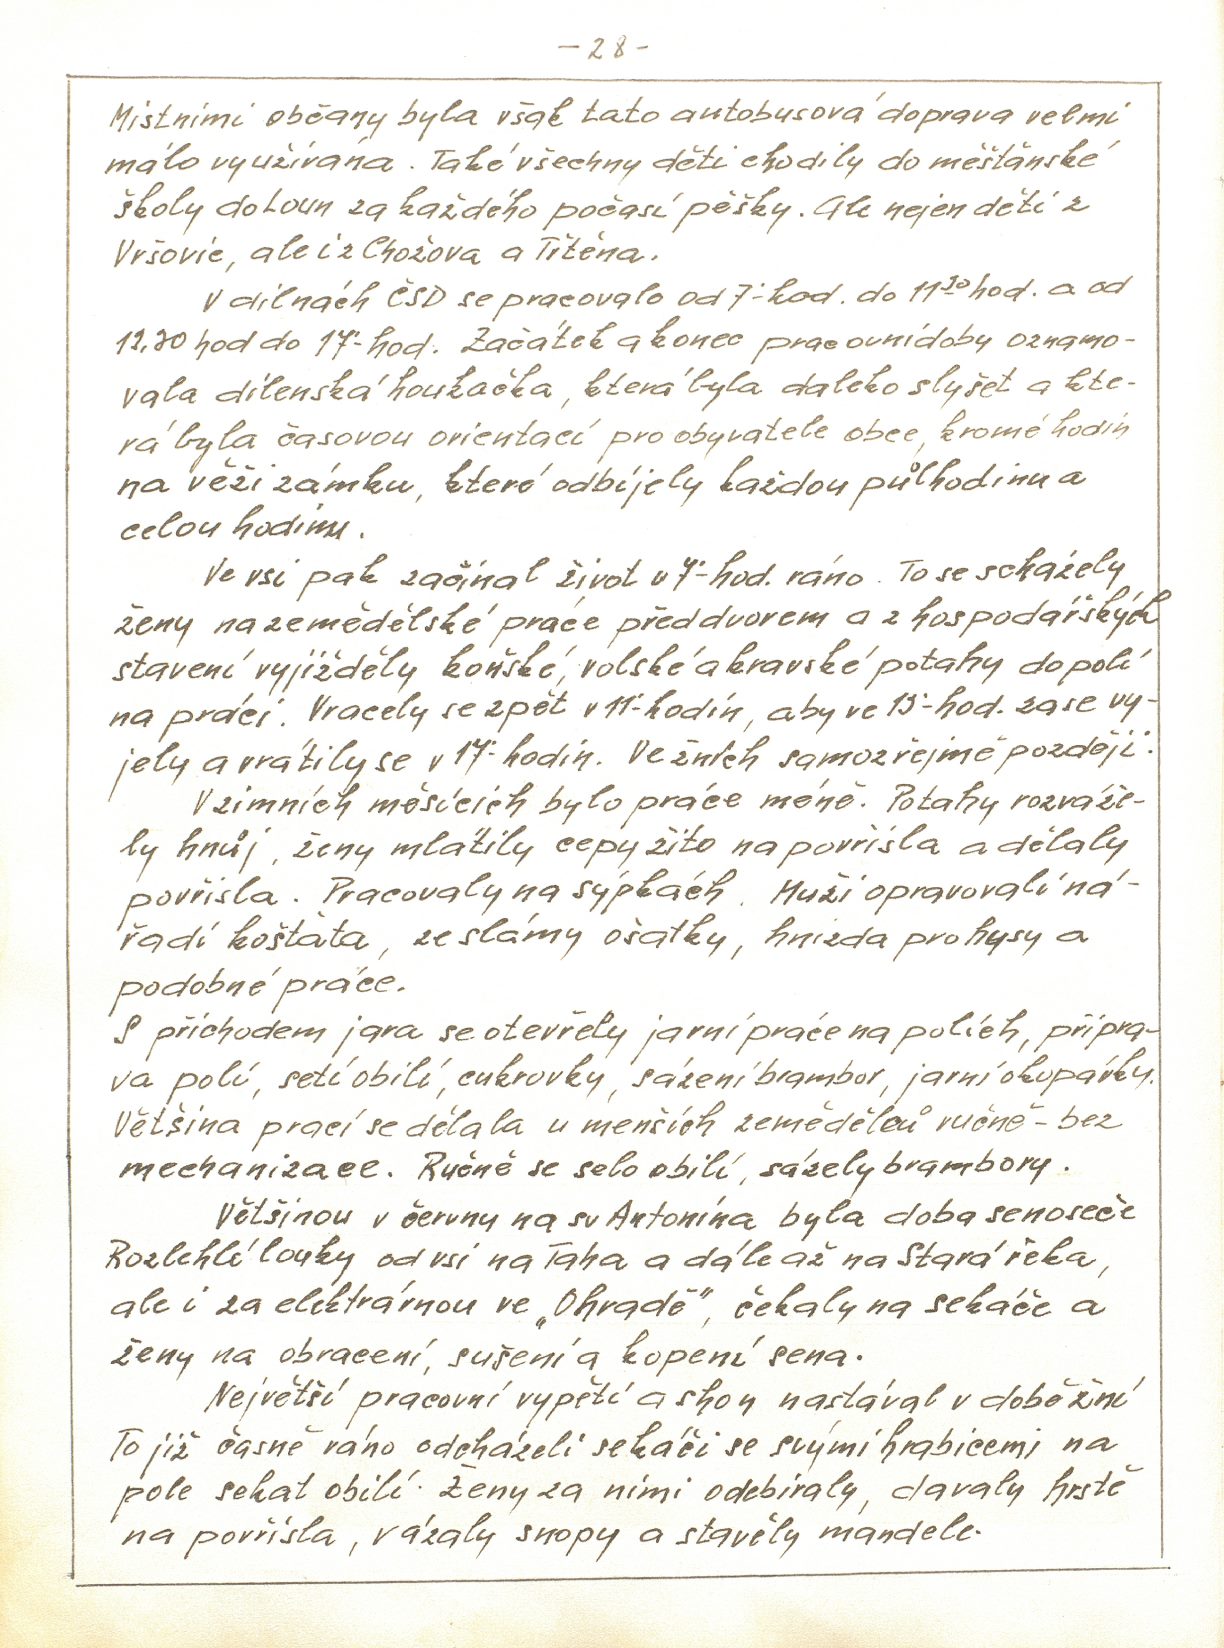 - 28 -
Místními občany byla však tato autobusová doprava velmi
málo využívána. Také všechny děti chodily do měšťánské
školy do Loun za každého počasí pěšky. Ale nejen děti z
Vršovic, ale i z Chožova a Třtěna.
V dílnách ČSD se pracovalo od 7- hod. do 11³⁰ hod. a od
12.30 hod do 17- hod. Začátek a konec pracovní doby oznamo-
vala dílenská houkačka, která byla daleko slyšet a kte-
rá byla časovou orientací pro obyvatele obce, kromě hodin
na věži zámku, které odbíjely každou půlhodinu a
celou hodinu.
Ve vsi pak začínal život v 7- hod. ráno. To se scházely
ženy na zemědělské práce před dvorem a z hospodářských
stavení vyjížděly koňské, volské a kravské potahy do polí
na práci. Vracely se zpět v 11- hodin, aby ve 13- hod. zase vy-
jely a vrátily se v 17- hodin. Ve žních samozřejmě později.
V zimních měsících bylo práce méně. Potahy rozváže-
ly hnůj, ženy mlátily cepy žito na povřísla a dělaly
povřísla. Pracovaly na sýpkách. Muži opravovali ná-
řadí košťata, ze slámy ošatky, hnízda pro husy a
podobné práce.
S příchodem jara se otevřely jarní práce na polích, přípra-
va polí, setí obilí, cukrovky, sázení brambor, jarní okopávky.
Většina prací se dělala u menších zemědělců ručně - bez
mechanizace. Ručně se selo obilí, sázely brambory.
Většinou v červnu na sv Antonína byla doba senoseče
Rozlehlé louky od vsi na Taha a dále až na Stará řeka,
ale i za elektrárnou ve „Ohradě", čekaly na sekáče a
ženy na obracení, sušení a kopení sena.
Největší pracovní vypětí a shon nastával v době žní
To již časně ráno odcházeli sekáči se svými hrabicemi na
pole sekat obilí. Ženy za nimi odebíraly, davaly hrstě
na povřísla, vázaly snopy a stavěly mandele.